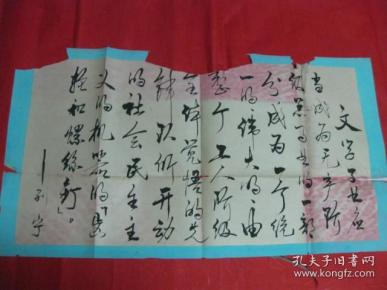 文学事业应
当成为无产阶
级总的事业的一部
分成为一个统
一的伟大的由
整个工人阶级
全体觉悟的先
锋队所开动
的社会民主主
义的机器的「齿
轮和螺丝钉」。
——列宁
孔夫子旧书网